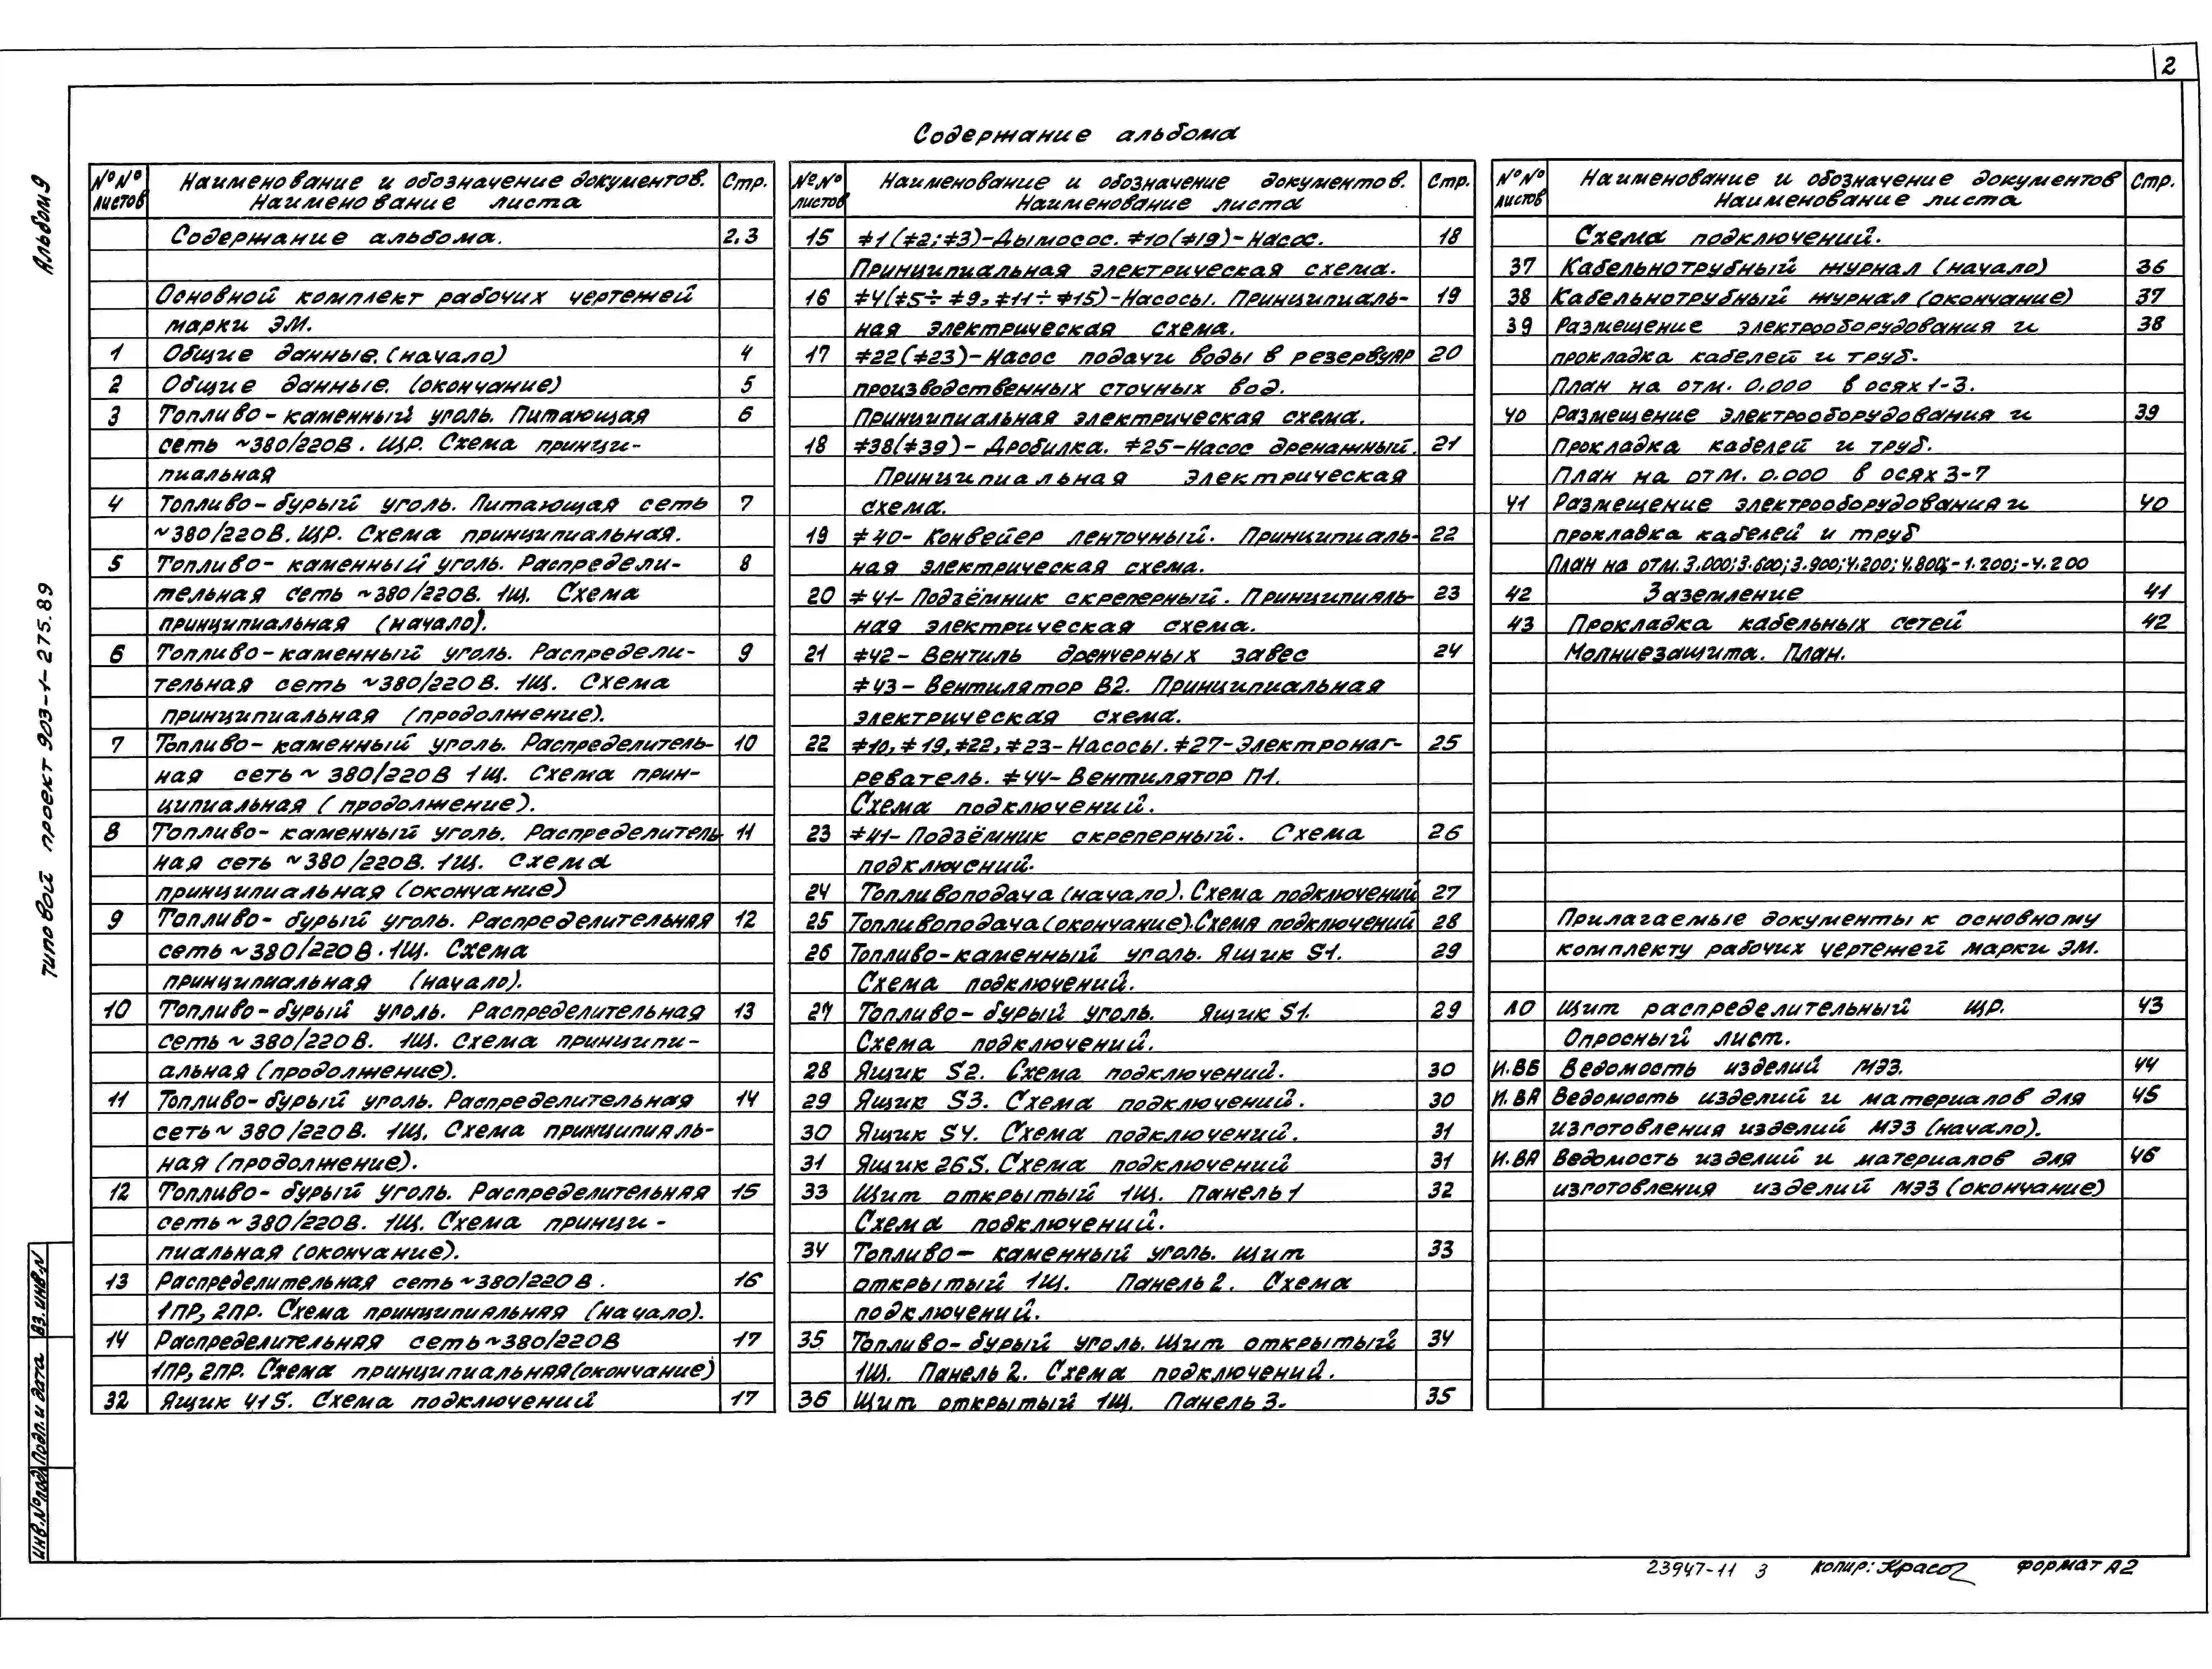 2
Содержание альбома
Альбом 9
типовой проект 903-1-275.89
№№ листов
Наименование и обозначение документов. Наименование листа
Стр.
Содержание альбома. 2.3
Основной комплект рабочих чертежей
марки ЭМ.
1 Общие данные. (начало) 4
2 Общие данные. (окончание) 5
3 Топливо-каменный уголь. Питающая 6
сеть ~380/220В. ЩР. Схема принци-
пиальная
4 Топливо-бурый уголь. Питающая сеть 7
~380/220В. ЩР. Схема принципиальная.
5 Топливо-каменный уголь. Распредели- 8
тельная сеть ~380/220В. 1Щ. Схема
принципиальная (начало).
6 Топливо-каменный уголь. Распредели- 9
тельная сеть ~380/220В. 1Щ. Схема
принципиальная (продолжение).
7 Топливо-каменный уголь. Распределитель- 10
ная сеть ~ 380/220В 1Щ. Схема прин-
ципиальная (продолжение).
8 Топливо-каменный уголь. Распределитель- 11
ная сеть ~380/220В. 1Щ. Схема
принципиальная (окончание)
9 Топливо-бурый уголь. Распределительная 12
сеть ~380/220В. 1Щ. Схема
принципиальная (начало).
10 Топливо-бурый уголь. Распределительная 13
сеть ~ 380/220В. 1Щ. Схема принципи-
альная (продолжение).
11 Топливо-бурый уголь. Распределительная 14
сеть ~ 380/220В. 1Щ. Схема принципиаль-
ная (продолжение).
12 Топливо-бурый уголь. Распределительная 15
сеть ~ 380/220В. 1Щ. Схема принци-
пиальная (окончание).
13 Распределительная сеть ~380/220В. 16
1ПР, 2ПР. Схема принципиальная (начало).
14 Распределительная сеть ~380/220В 17
1ПР, 2ПР. Схема принципиальная (окончание)
32 Ящик 41S. Схема подключений 17
№№ листов
Наименование и обозначение документов. Наименование листа
Стр.
15 ≠1(≠2;≠3)-Дымосос. ≠10(≠19)-Насос. 18
Принципиальная электрическая схема.
16 ≠4(≠5÷≠9,≠11÷≠15)-Насосы. Принципиаль- 19
ная электрическая схема.
17 ≠22(≠23)-Насос подачи воды в резервуар 20
производственных сточных вод.
Принципиальная электрическая схема.
18 ≠38(≠39)-Дробилка. ≠25-Насос дренажный. 21
Принципиальная электрическая
схема.
19 ≠40-Конвейер ленточный. Принципиаль- 22
ная электрическая схема.
20 ≠41-Подзёмник скреперный. Принципиаль- 23
ная электрическая схема.
21 ≠42-Вентиль дренчерных завес 24
≠43-Вентилятор В2. Принципиальная
электрическая схема.
22 ≠10,≠19,≠22,≠23-Насосы. ≠27-Электронаг- 25
реватель. ≠44-Вентилятор П1.
Схема подключений.
23 ≠41-Подзёмник скреперный. Схема 26
подключений.
24 Топливоподача (начало). Схема подключений 27
25 Топливоподача (окончание). Схема подключений 28
26 Топливо-каменный уголь. Ящик S1. 29
Схема подключений.
27 Топливо-бурый уголь. Ящик S1. 29
Схема подключений.
28 Ящик S2. Схема подключений. 30
29 Ящик S3. Схема подключений. 30
30 Ящик S4. Схема подключений. 31
31 Ящик 26S. Схема подключений 31
33 Щит открытый 1Щ. Панель 1 32
Схема подключений.
34 Топливо-каменный уголь. Щит 33
открытый 1Щ. Панель 2. Схема
подключений.
35 Топливо-бурый уголь. Щит открытый 34
1Щ. Панель 2. Схема подключений.
36 Щит открытый 1Щ. Панель 3. 35
№№ листов
Наименование и обозначение документов Наименование листа
Стр.
Схема подключений.
37 Кабельнотрубный журнал (начало) 36
38 Кабельнотрубный журнал (окончание) 37
39 Размещение электрооборудования и 38
прокладка кабелей и труб.
План на отм. 0.000 в осях 1-3.
40 Размещение электрооборудования и 39
Прокладка кабелей и труб.
План на отм. 0.000 в осях 3-7
41 Размещение электрооборудования и 40
прокладка кабелей и труб
План на отм. 3.000; 3.600; 3.900; 4.200; 4.800; -1.200; -4.200
42 Заземление 41
43 Прокладка кабельных сетей 42
Молниезащита. План.
Прилагаемые документы к основному
комплекту рабочих чертежей марки ЭМ.
ЛО Щит распределительный ЩР. 43
Опросный лист.
И.ВБ Ведомость изделий МЭЗ. 44
И.ВА Ведомость изделий и материалов для 45
изготовления изделий МЭЗ (начало).
И.ВА Ведомость изделий и материалов для 46
изготовления изделий МЭЗ (окончание)
Инв.№подл. Подп. и дата Вз. инв.N
23947-11 3 копир: формат А2